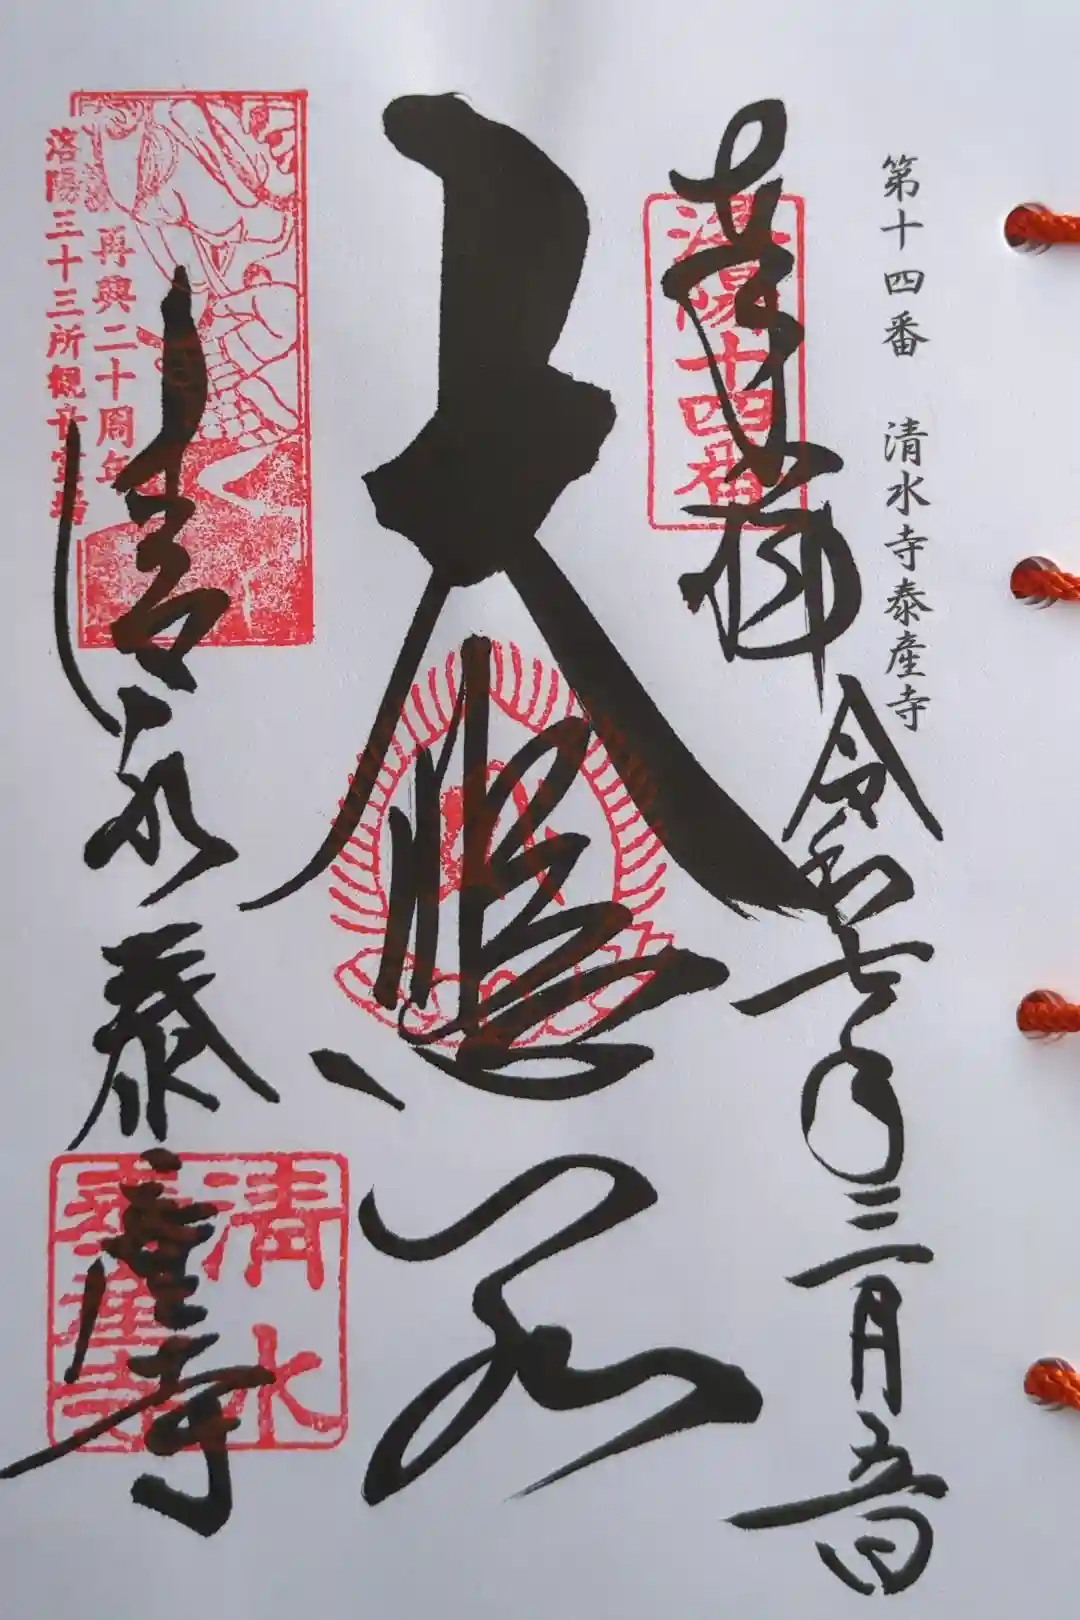 第十四番 清水寺泰産寺
奉拝
洛陽十四番
令和七年三月五日
大悲殿
再興二十周年
洛陽三十三所観音霊場
清水泰産寺
清水
泰産寺